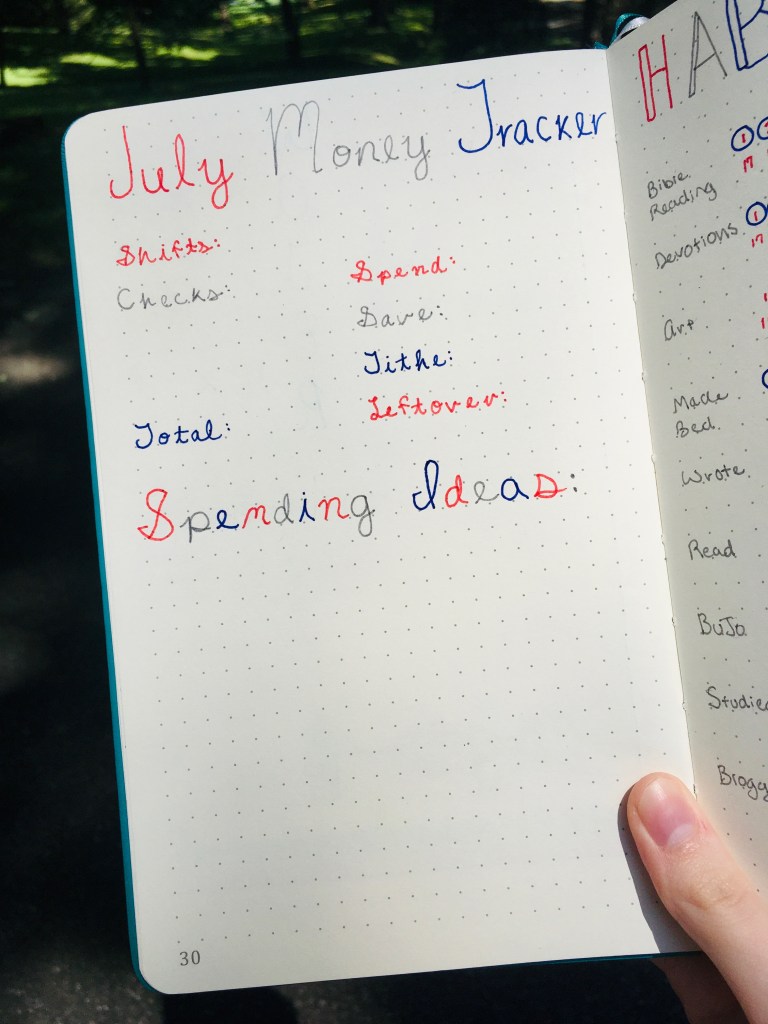 July Money Tracker
Shifts:
Checks:
Total:
Spend:
Save:
Tithe:
Leftover:
Spending Ideas:
30
HAB
Bible
Reading
Devotions
Art
Made
Bed
Wrote
Read
BuJo
Studied
Blogg
1
17
1
17